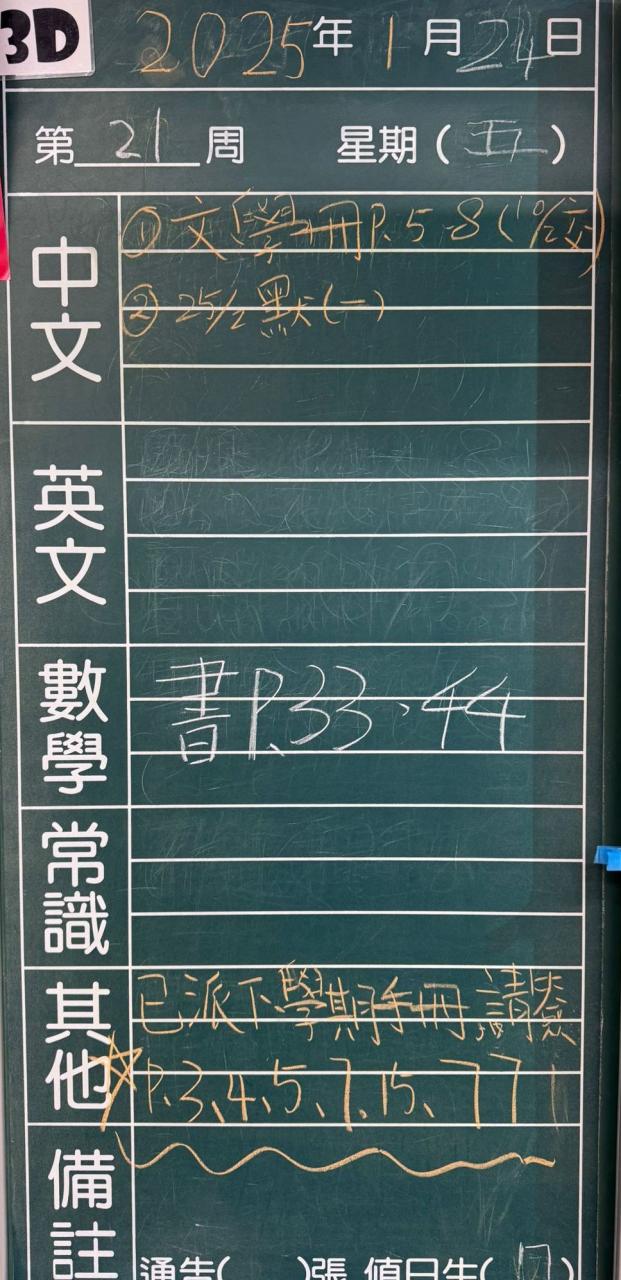 3D
2025年1月24日
第21周 星期(五)
中文
① 文學冊P.5-8(10/2交)
② 25/2 默(一)
英文
數學
書P.33、44
常識
其他
已派下學期手冊,請
☆P.3、4、5、7、15、77
備註
通告( )張 值日生(17)